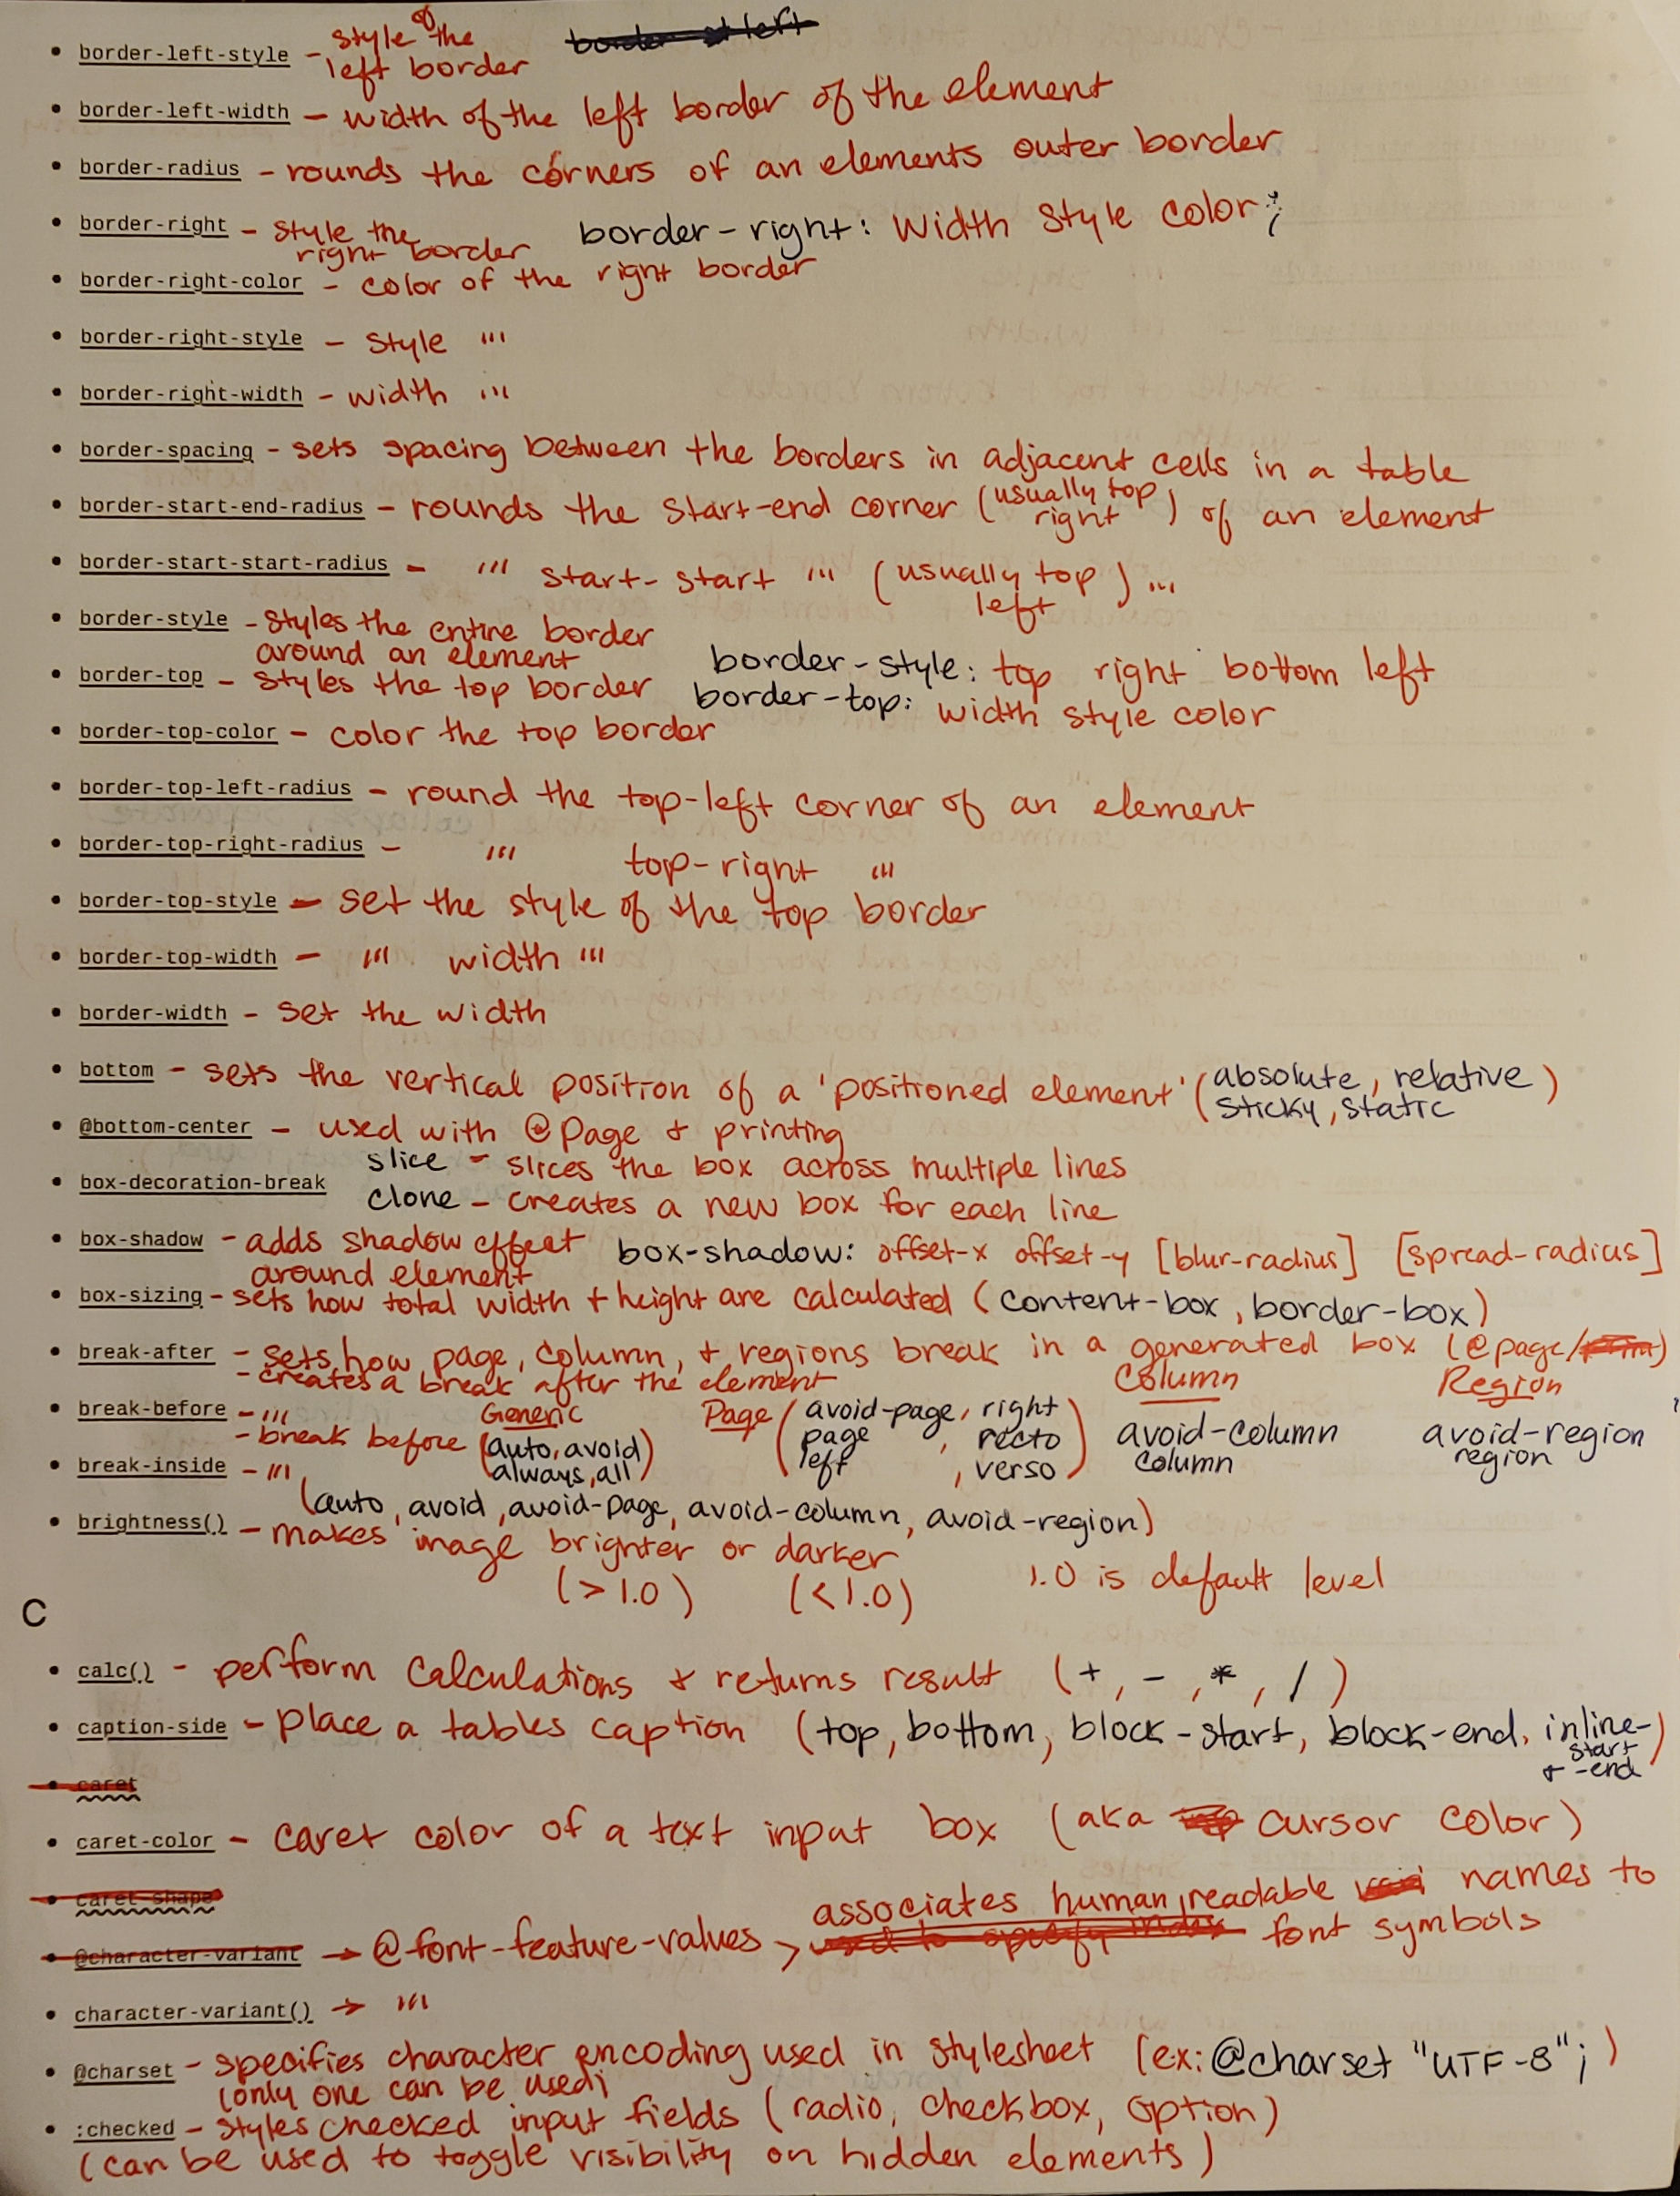 • border-left-style - style the
left border
• border-left-width - width of the left border of the element
• border-radius - rounds the corners of an elements outer border
• border-right - style the right border border-right: width style color;
• border-right-color - color of the right border
• border-right-style - style "'
• border-right-width - width "'
• border-spacing - sets spacing between the borders in adjacent cells in a table
• border-start-end-radius - rounds the start-end corner (usually top right) of an element
• border-start-start-radius - "' start-start "' (usually top left) ...
• border-style - styles the entire border
around an element border-style: top right bottom left
• border-top - styles the top border border-top: width style color
• border-top-color - color the top border
• border-top-left-radius - round the top-left corner of an element
• border-top-right-radius - "' top-right "'
• border-top-style - set the style of the top border
• border-top-width - "' width "'
• border-width - set the width
• bottom - sets the vertical position of a 'positioned element' (absolute, relative
sticky, static)
• @bottom-center - used with @page + printing
• box-decoration-break slice - slices the box across multiple lines
clone - creates a new box for each line
• box-shadow - adds shadow effect
around element box-shadow: offset-x offset-y [blur-radius] [spread-radius]
• box-sizing - sets how total width + height are calculated (content-box, border-box)
• break-after - sets how page, column, + regions break in a generated box (@page/)
- creates a break after the element
• break-before - "'
- break before
Generic
(auto, avoid
always, all)
Page
(avoid-page, right
page, recto
left, verso)
Column
avoid-column
column
Region
avoid-region
region
• break-inside - "'
(auto, avoid, avoid-page, avoid-column, avoid-region)
• brightness() - makes image brighter or darker
(>1.0) (<1.0) 1.0 is default level
C
• calc() - perform calculations + returns result (+, -, *, /)
• caption-side - place a tables caption (top, bottom, block-start, block-end, inline-
start
+ -end)
• caret
• caret-color - caret color of a text input box (aka cursor color)
• caret-shape
• @character-variant → @font-feature-values > associates human readable names to
font symbols
• character-variant() → "'
• @charset - specifies character encoding used in stylesheet (ex: @charset "UTF-8";)
(only one can be used)
• :checked - styles checked input fields (radio, checkbox, option)
(can be used to toggle visibility on hidden elements)